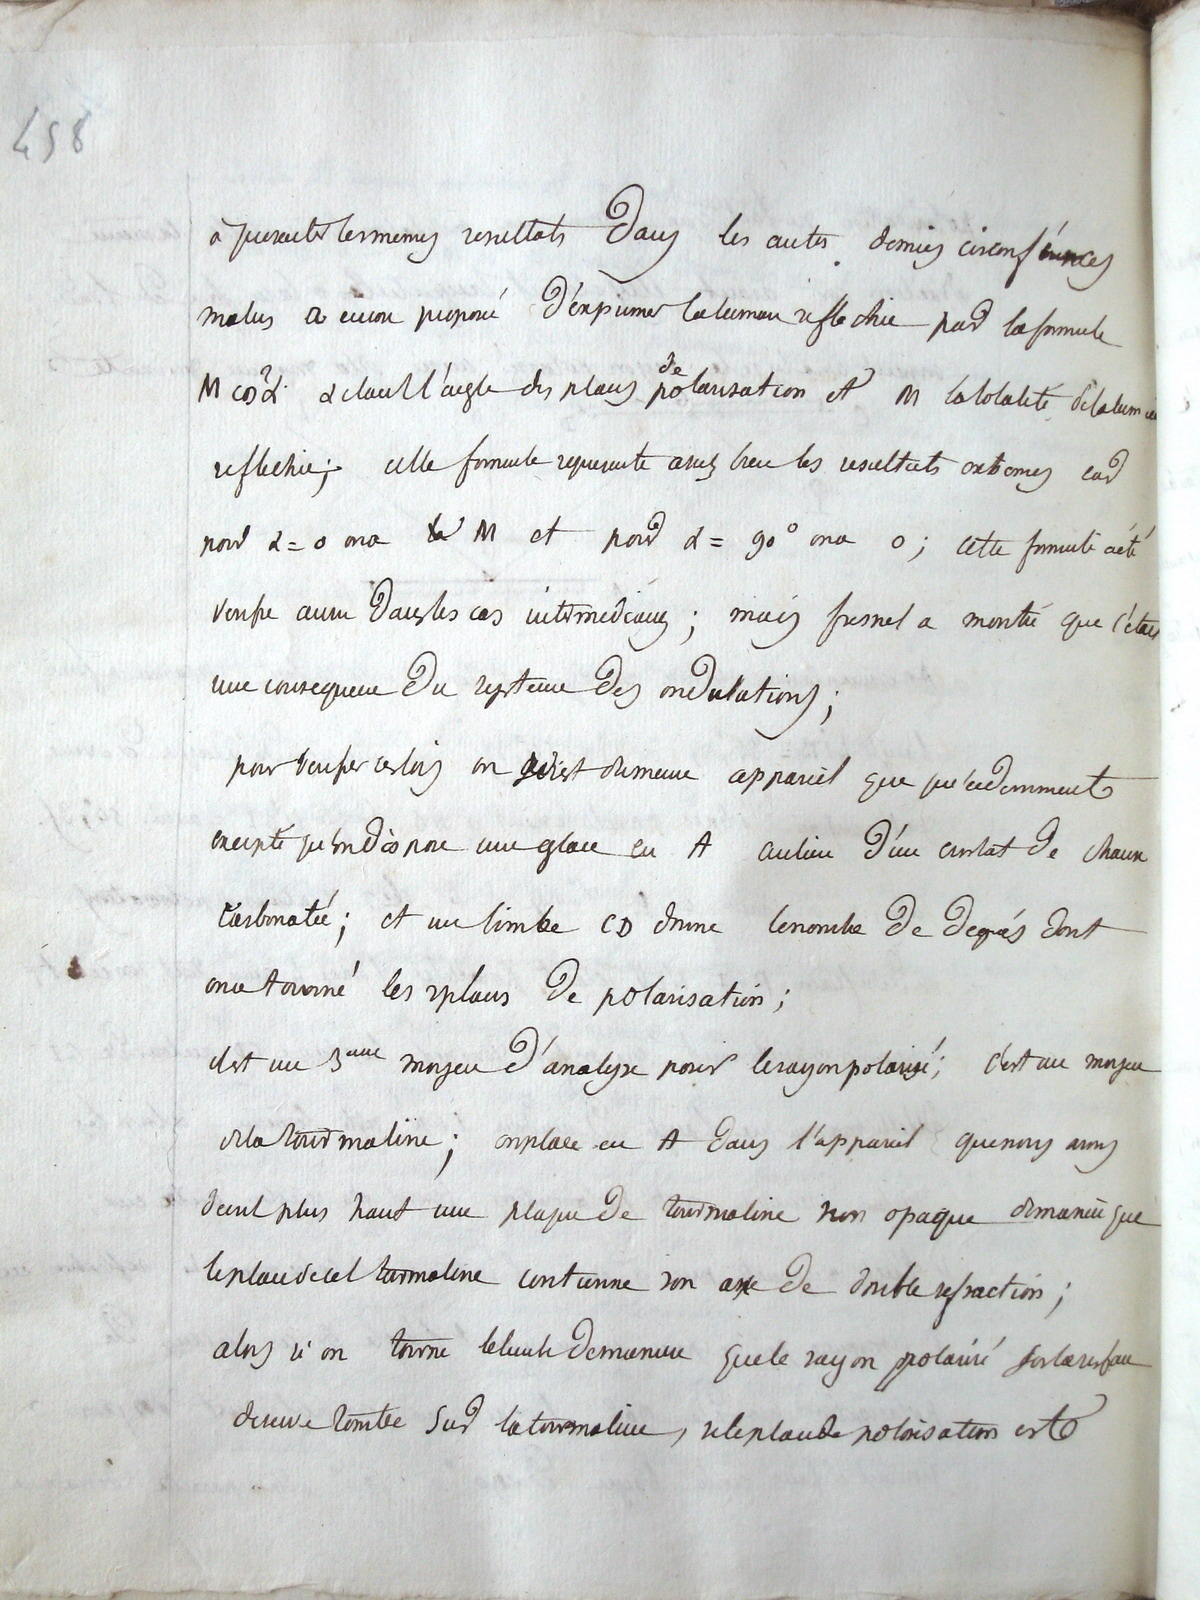 458
a presenté les memes resultats Dans les autres demies circonférences
malus a encore proposé D'exprimer la lumiere reflechie par la formule
M cos²α α etant l'angle des plans de polarisation et M la totalité de la lumiere
reflechie; cette formule represente assez bien les resultats extremes car
pour α = 0 on a M et pour α = 90° on a 0; cette formule a été
verifié aussi Dans les cas intermediaires; mais fresnel a montré que c'etait
une consequence Du systeme Des ondulations;
pour verifier ces lois on du meme appareil que precedemment
excepté qu'on dispose une glace en A au lieu D'un cristal De chaux
Carbonatée; et un limbe CD donne le nombre De Degrés dont
on a tourné les 2 plans De polarisation;
il est un 3eme moyen D'analyse pour le rayon polarisé; c'est au moyen
de la tourmaline; on place en A Dans l'appareil que nous avons
decrit plus haut une plaque De tourmaline non opaque de maniere que
le plan de cet tourmaline contienne son axe De double refraction;
alors si on tourne le limbe De maniere que le rayon polarisé
tombe sur la tourmaline, si le plan de polarisation est